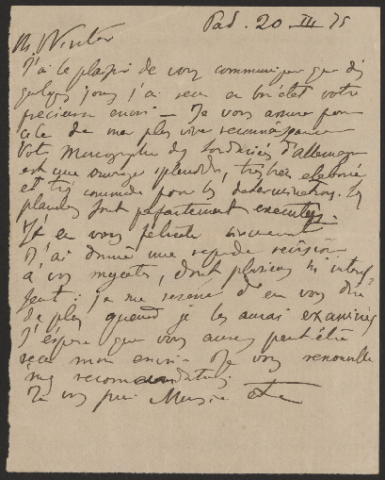 Pad. 20. III. 75
M. Winter
J'ai le plaisir de vous communiquer que dès
quelques jours j'ai reçu votre
précieux envoi — Je vous assure pour
cela de ma plus vive reconnaissance
Votre Monographie des Sordariées d'Allemagne
est un ouvrage splendide, très bien élaboré
et très commode pour les déterminations. Les
planches sont parfaitement executées.
Je en vous félicite vivement
J'ai donné une rapide révision
à vos mycètes, dont plusieurs m'
: je me reserve d'en vous dire
de plus, quand je les aurai examinés
J'espère que vous aurez peut être
reçu mon envoi. Je vous renouvelle
mes recommandations
Je vous prie Monsieur etc